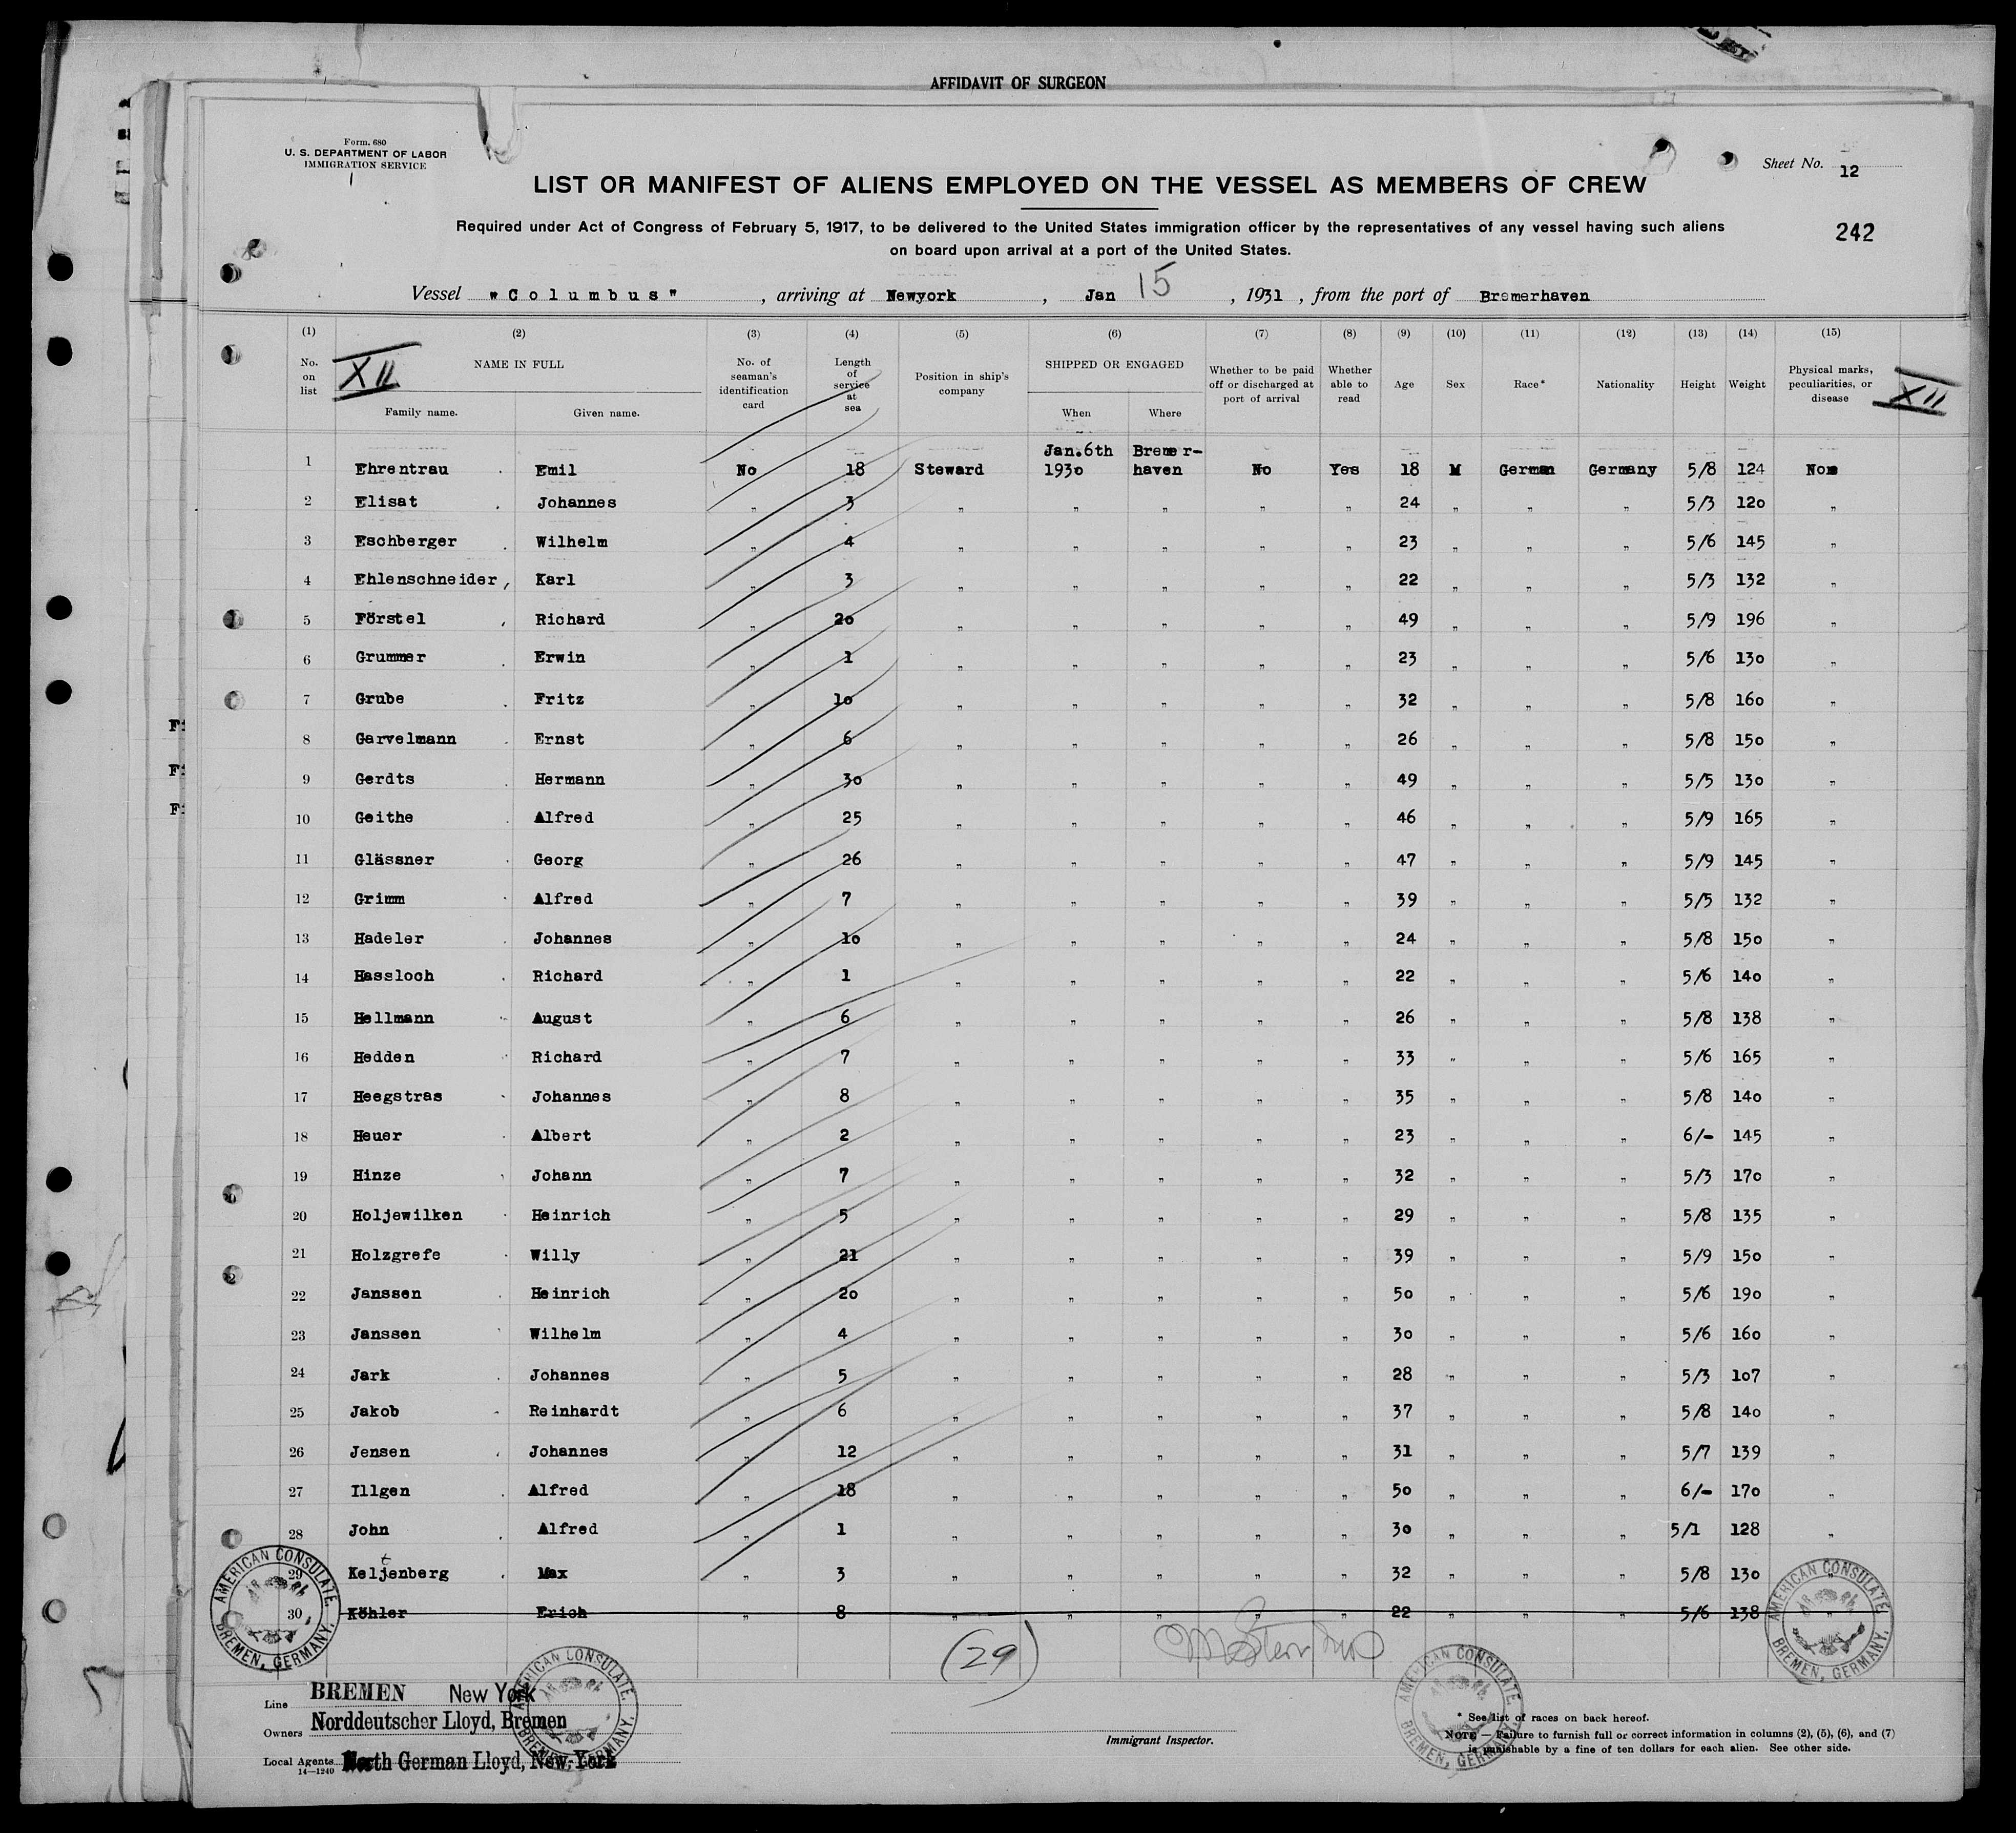 AFFIDAVIT OF SURGEON
Form. 680
U. S. DEPARTMENT OF LABOR
IMMIGRATION SERVICE
Sheet No. 12
LIST OR MANIFEST OF ALIENS EMPLOYED ON THE VESSEL AS MEMBERS OF CREW
Required under Act of Congress of February 5, 1917, to be delivered to the United States immigration officer by the representatives of any vessel having such aliens
on board upon arrival at a port of the United States.
242
Vessel "Columbus", arriving at Newyork, Jan 15, 1931, from the port of Bremerhaven
(1) (2) (3) (4) (5) (6) (7) (8) (9) (10) (11) (12) (13) (14) (15)
No. on list
NAME IN FULL
Family name. Given name.
No. of seaman's identification card
Length of service at sea
Position in ship's company
SHIPPED OR ENGAGED
When Where
Whether to be paid off or discharged at port of arrival
Whether able to read
Age
Sex
Race*
Nationality
Height
Weight
Physical marks, peculiarities, or disease
XII
XII
1 Ehrentrau Emil No 18 Steward Jan.6th 1930 Bremer-haven No Yes 18 M German Germany 5/8 124 Non
2 Elisat Johannes „ 3 „ „ „ „ „ 24 „ „ „ 5/3 120 „
3 Eschberger Wilhelm „ 4 „ „ „ „ „ 23 „ „ „ 5/6 145 „
4 Ehlenschneider, Karl „ 3 „ „ „ „ „ 22 „ „ „ 5/3 132 „
5 Förstel Richard „ 20 „ „ „ „ „ 49 „ „ „ 5/9 196 „
6 Grummer Erwin „ 1 „ „ „ „ „ 23 „ „ „ 5/6 130 „
7 Grube Fritz „ 10 „ „ „ „ „ 32 „ „ „ 5/8 160 „
8 Garvelmann Ernst „ 6 „ „ „ „ „ 26 „ „ „ 5/8 150 „
9 Gerdts Hermann „ 30 „ „ „ „ „ 49 „ „ „ 5/5 130 „
10 Geithe Alfred „ 25 „ „ „ „ „ 46 „ „ „ 5/9 165 „
11 Glässner Georg „ 26 „ „ „ „ „ 47 „ „ „ 5/9 145 „
12 Grimm Alfred „ 7 „ „ „ „ „ 39 „ „ „ 5/5 132 „
13 Hadeler Johannes „ 10 „ „ „ „ „ 24 „ „ „ 5/8 150 „
14 Hassloch Richard „ 1 „ „ „ „ „ 22 „ „ „ 5/6 140 „
15 Hellmann August „ 6 „ „ „ „ „ 26 „ „ „ 5/8 138 „
16 Hedden Richard „ 7 „ „ „ „ „ 33 „ „ „ 5/6 165 „
17 Heegstras Johannes „ 8 „ „ „ „ „ 35 „ „ „ 5/8 140 „
18 Heuer Albert „ 2 „ „ „ „ „ 23 „ „ „ 6/- 145 „
19 Hinze Johann „ 7 „ „ „ „ „ 32 „ „ „ 5/3 170 „
20 Holjewilken Heinrich „ 5 „ „ „ „ „ 29 „ „ „ 5/8 135 „
21 Holzgrefe Willy „ 21 „ „ „ „ „ 39 „ „ „ 5/9 150 „
22 Janssen Heinrich „ 20 „ „ „ „ „ 50 „ „ „ 5/6 190 „
23 Janssen Wilhelm „ 4 „ „ „ „ „ 30 „ „ „ 5/6 160 „
24 Jark Johannes „ 5 „ „ „ „ „ 28 „ „ „ 5/3 107 „
25 Jakob Reinhardt „ 6 „ „ „ „ „ 37 „ „ „ 5/8 140 „
26 Jensen Johannes „ 12 „ „ „ „ „ 31 „ „ „ 5/7 139 „
27 Illgen Alfred „ 18 „ „ „ „ „ 50 „ „ „ 6/- 170 „
28 John Alfred „ 1 „ „ „ „ „ 30 „ „ „ 5/1 128 „
29 Keltjenberg Max „ 3 „ „ „ „ „ 32 „ „ „ 5/8 130 „
30 Köhler Erich „ 8 „ „ „ „ „ 22 „ „ „ 5/6 138 „
(29)
AMERICAN CONSULATE. BREMEN, GERMANY.
AMERICAN CONSULATE. BREMEN, GERMANY.
AMERICAN CONSULATE. BREMEN, GERMANY.
AMERICAN CONSULATE. BREMEN, GERMANY.
Line BREMEN New York
Owners Norddeutscher Lloyd, Bremen
Local Agents North German Lloyd, New-York
14—1240
Immigrant Inspector.
* See list of races on back hereof.
NOTE.—Failure to furnish full or correct information in columns (2), (5), (6), and (7)
is punishable by a fine of ten dollars for each alien. See other side.